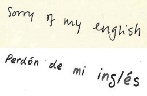 Sorry of my english
Perdón de mi inglés